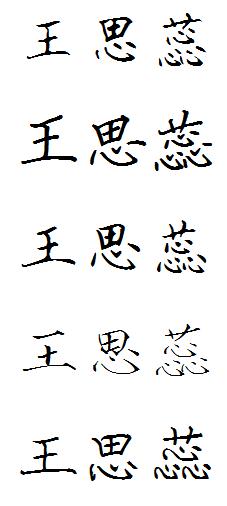 王思蕊
王思蕊
王思蕊
王思蕊
王思蕊